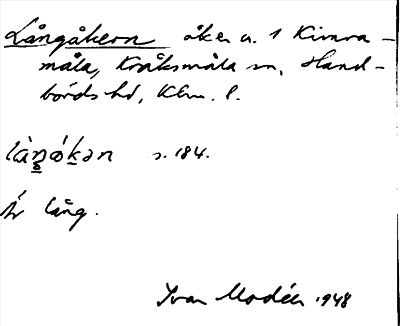 Långåkern åker n. 1 Kimra-
måla, Kråksmåla sn, Hand-
börds hd, Klm. l.
làŋákən s. 184.
Är lång.
Ivar Modéer 1948